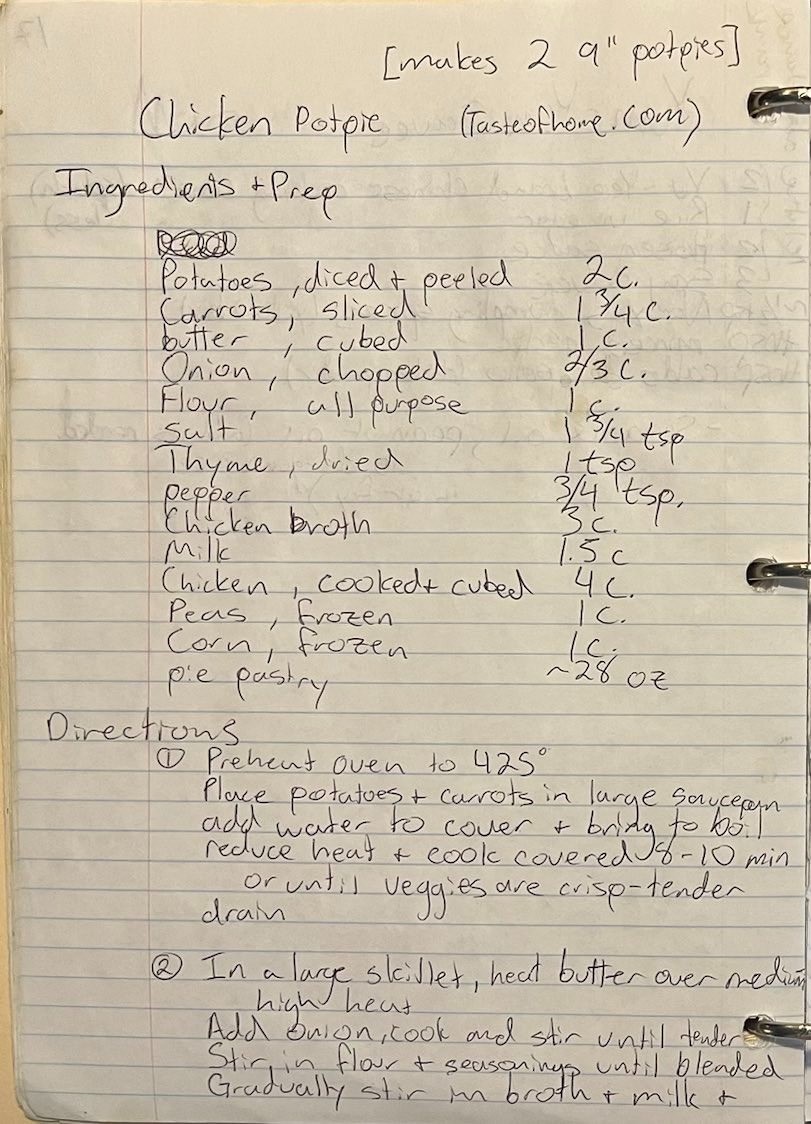 [makes 2 9" potpies]
Chicken Potpie (Tasteofhome.com)
Ingredients + Prep
Potatoes, diced + peeled 2 c.
Carrots, sliced 1 3/4 c.
butter, cubed 1 c.
Onion, chopped 2/3 c.
Flour, all purpose 1 c.
salt 1 3/4 tsp
Thyme, dried 1 tsp
pepper 3/4 tsp.
Chicken broth 3 c.
Milk 1.5 c
Chicken, cooked + cubed 4 c.
Peas, frozen 1 c.
Corn, frozen 1 c.
pie pastry ~28 oz
Directions
① Preheat oven to 425°
Place potatoes + carrots in large saucepan
add water to cover + bring to boil
reduce heat + cook covered 8-10 min
or until veggies are crisp-tender
drain
② In a large skillet, heat butter over medium
high heat
Add onion, cook and stir until tender
Stir in flour + seasonings until blended
Gradually stir in broth + milk +